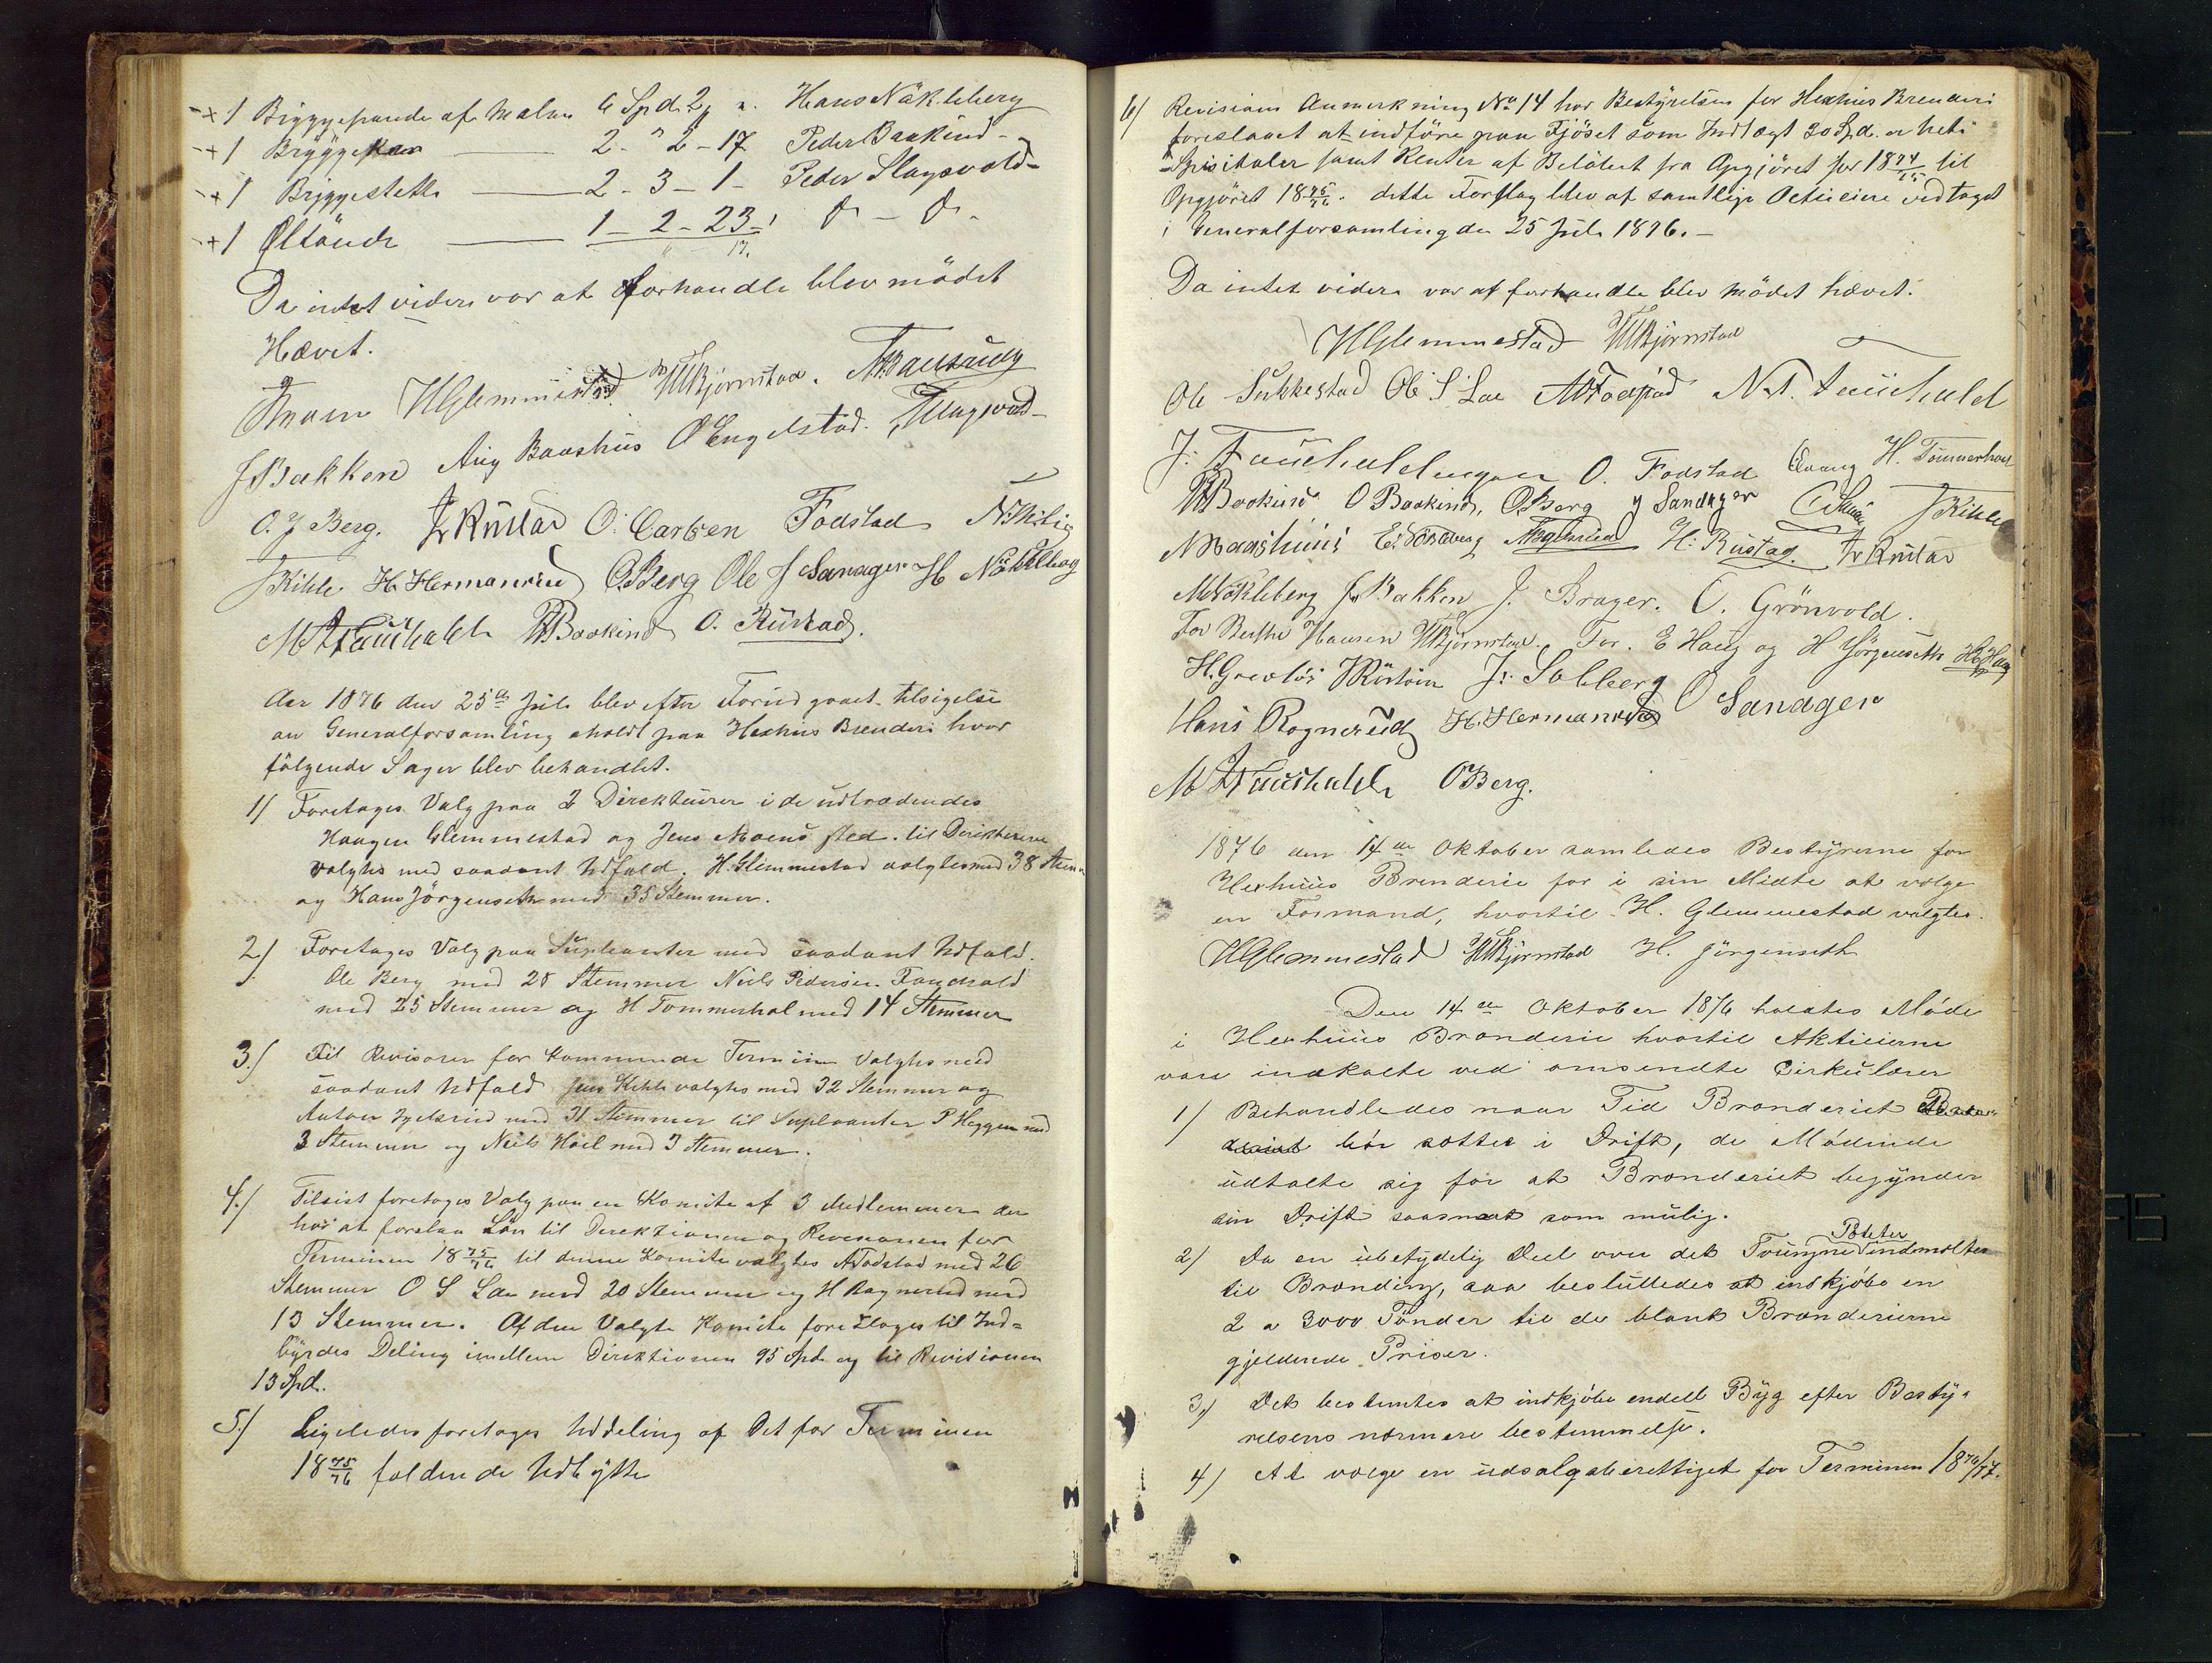 -+ 1 Bryggepande af Malm 6 Spd. 2 Hans Nökleberg
-+ 1 Bryggekar — 2 - 2 - 17 Peder Baakind -
-+ 1 Bryggestelle — 2 - 3 - 1 - Peder Slagsvold -
-+ 1 Øltönde — 1 - 2 - 23
Da intet videre var at forhandle blev mödet
Hævet.
HGlemmestad Bjørnstad.
J Bakken Aug Baashus O Engelstad. Slagsvold
O. J Berg. O. Carlsen Fodstad
J Kihle. H. Hermanrud O Berg Ole J Sanager H Nökleberg
M Fauchald P Baakind O. Rustad.
Aar 1876 den 25de Juli blev efter Forud gaaet tilsigelse
an Generalforsamling aholdt paa Hexhus Brenderi hvor
fölgende Sager blev behandlet.
1/ Foretoges Valg paa 2 Direkteurer i de udtrædendes
Haagen Glemmestad og Jens Moens sted. til Direkteurer
valgtes med saadant Udfald. H. Glemmestad valgtes med 38 Stem
og Hans Jörgenseth med 35 Stemmer.
2/ Foretoges Valg paa Supleanter med saadant Udfald.
Ole Berg med 28 Stemmer Niels Pedersen Fauchald
med 25 Stemmer og H Tommerhol med 14 Stemmer
3./ Til Revisorer for kommende Termin Valgtes med
saadant Udfald Jens Kihle valgtes med 32 Stemmer og
Anton med 31 Stemmer til Supleanter P Heggen med
3 Stemmer og Niels Hoel med 3 Stemmer.
4./ Tilsist foretoges Valg paa en Komite af 3 Medlemmer der
har at foreslaa Lön til Direktionen og Revisionen for
Terminen 1875/76 til denne Komite valgtes A Fodstad med 26
Stemmer O S Lae med 20 Stemmer og H Rognerud med
13 Stemmer. Af den Valgte Komite foreslages til Ind=
byrdes Deling imellem Direktionen 95 Spd og til Revisionen
13 Spd.
5./ Ligeledes foretoges Uddeling af Det for Terminen
1875/76 faldende Udbytte
6/ Revisions Anmerkning No 14 har Bestyrelsen for Hexhus Brenderi
foreslaaet at indföre paa Fjöset som Indtægt 30 Spd.
samt Renter af Belöbet fra Opgjöret for 1874/75 til
Opgjöret 1875/76. dette Forslag blev af samtlige Actieeiere vedtaget
i Generalforsamling den 25 Juli 1876. —
Da intet videre var at forhandle blev Mödet hævet.
HGlemmestad Bjørnstad
Ole Sukkestad Ole S Lae A Fodstad N. P. Fauchald
J. Fauchaldengen O. Fodstad H. Tømmerhol
P Baakind O Baakind, O Berg J Sandager J Kihle
N Baashuus H. Rustad.
M Nökleberg J Bakken J. Brager. O. Grönvold.
For Berthe Hansen Bjørnstad. For E Haug og H Jörgenseth
J. Solberg O Sanager
Hans Rognerud H. Hermanrud
M Fauchald O Berg.
1876 den 14de Oktober samledes Bestyrerne for
Hexhuus Brenderie for i sin Midte at vælge
en Formand, hvortil H. Glemmestad valgtes.
HGlemmestad Bjørnstad H. Jörgenseth
Den 14de Oktober 1876 holdtes Möde
i Hexhuus Brænderie hvortil Aktieierne
vare indkalte ved omsendte Cirkulærer
1/ Behandledes naar Tid Brænderiet
bör sættes i Drift, de Mödende
udtalte sig for at Brænderiet begynder
sin Drift saasnart som mulig.
Poteter
2/ Da en ubetydelig Deel over det Tvungne indmeldtes
til Brænding, saa besluttedes at indkjöbe en
2 a 3000 Tönder til de blant Brænderierne
gjeldende Priser.
3/ Det bestemtes at indkjöbe endell Byg efter Besty=
relsens nærmere bestemmelse.
4/ At vælge en udsalgsberettiget for Terminen 1876/77.